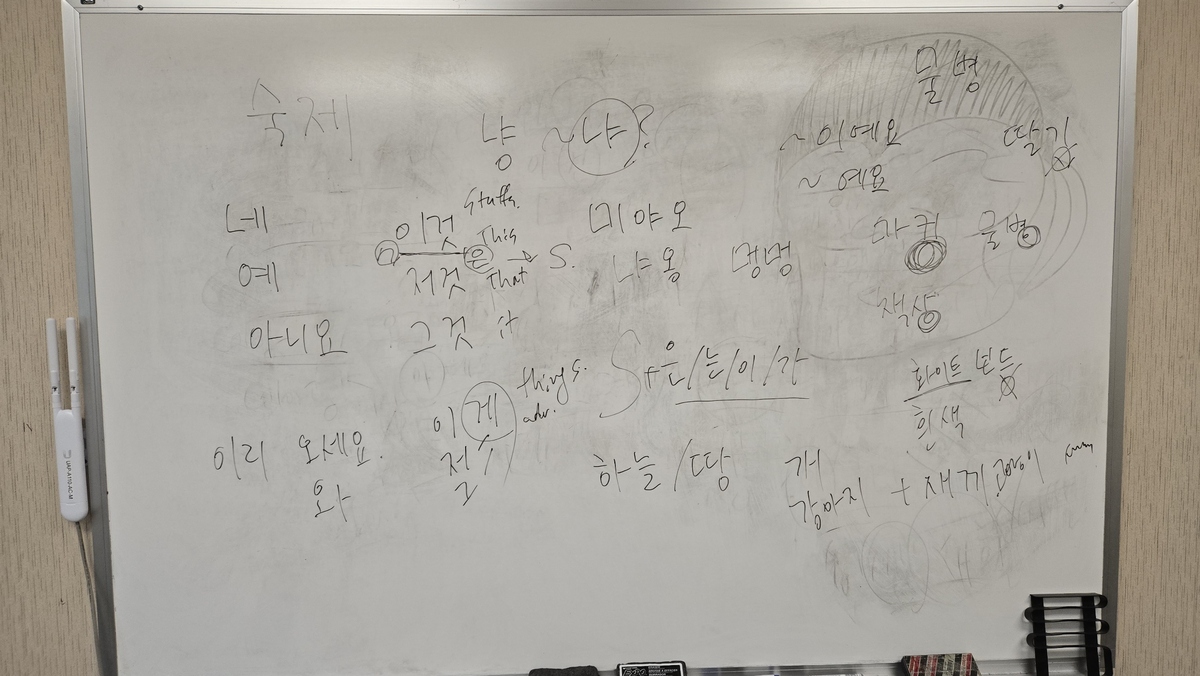 숙제
냥 ~냐?
물병
~이예요 딸기
~예요
네 이것 stuffs. This
미야오
마커 물병
예 저것 That → S.
냐옹 멍멍
책상
아니요 그것 it
S+은/는/이/가
화이트 보드
흰색
이게 things. adv.
이리 오세요.
저
와
그
하늘/땅
개
강아지 + 새끼 고양이